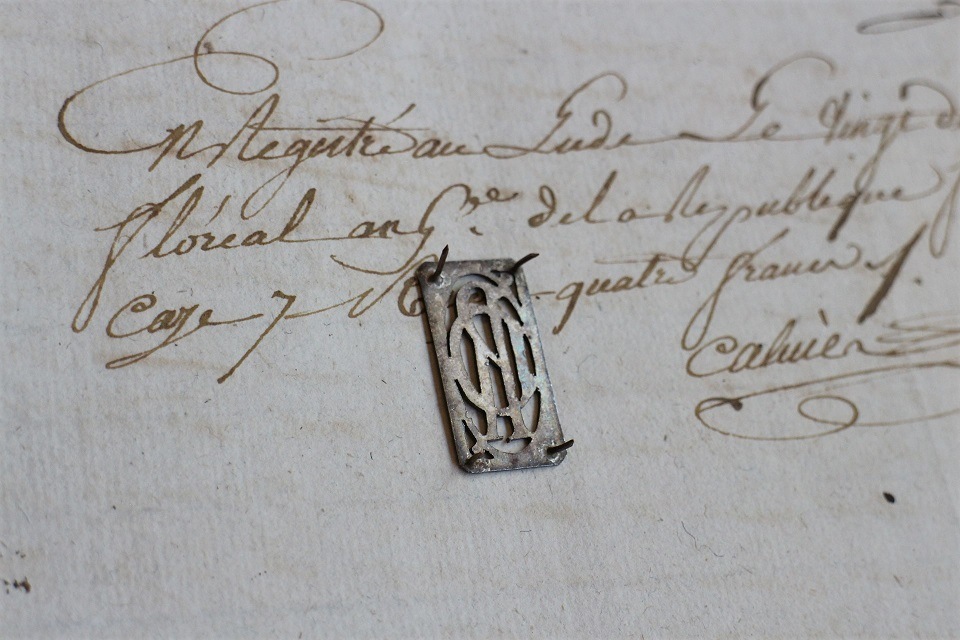 Enregistré au Lude Le vingt
floréal an 6.e de la Republique
Caze 7 quatre francs
Calmèn